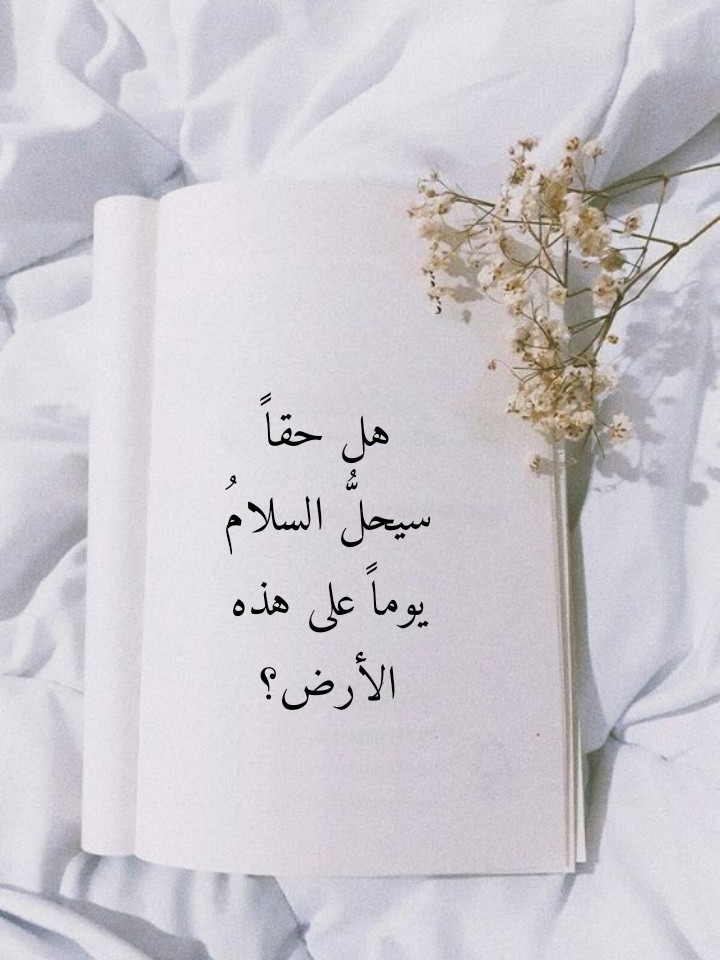 هل حقاً
سيحلُّ السلامُ
يوماً على هذه
الأرض؟